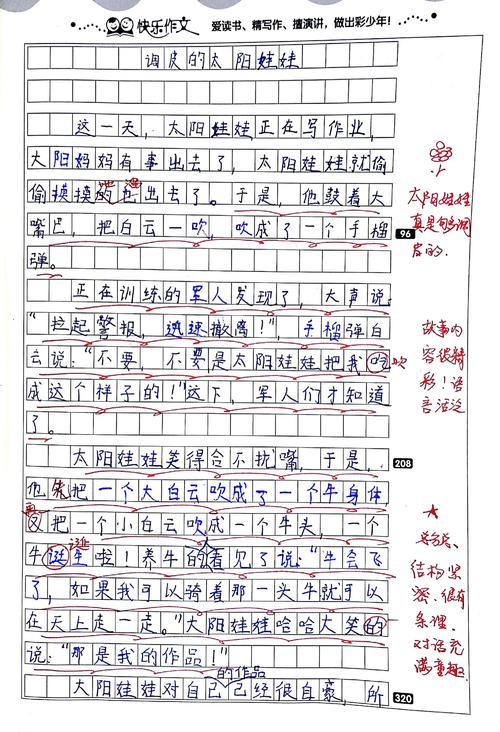 快乐作文
爱读书、精写作、擅演讲，做出彩少年！
调皮的太阳娃娃
这一天，太阳娃娃正在写作业，
太阳妈妈有事出去了，太阳娃娃就偷
偷摸摸的也出去了。于是，他鼓着大
嘴巴，把白云一吹，吹成了一个手榴
弹。
正在训练的军人发现了，大声说：
“拉起警报，迅速撤离！”，手榴弹白
云说：“不要，不要是太阳娃娃把我吹
成这个样子的！”这下，军人们才知道
了。
太阳娃娃笑得合不拢嘴，于是，
他先把一个大白云吹成了一个牛身体
又把一个小白云吹成一个牛头，一个
牛诞生啦！养牛的人看见了说：“牛会飞
了，如果我可以骑着那一头牛就可以
在天上走一走。”太阳娃娃哈哈大笑的
说：“那是我的作品！”
的作品
太阳娃娃对自己已经很自豪，所
96
208
320
太阳娃娃
真是够调
皮的.
吹
故事内
容很精
彩！语
言活泼
再
诞
结构紧
密、很有
条理，
对话充
满童趣.